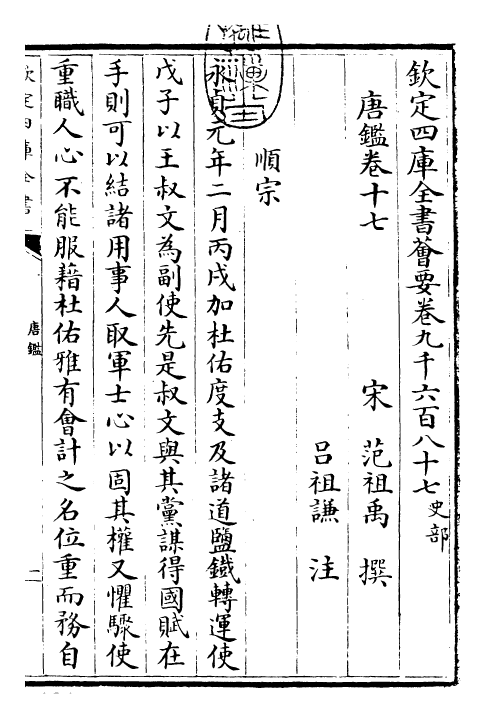 欽定四庫全書薈要卷九千六百八十七 史部
唐鑑卷十七
宋 范祖禹 撰
呂祖謙 注
順宗
永貞元年二月丙戌加杜佑度支及諸道鹽鐵轉運使
戊子以王叔文為副使先是叔文與其黨謀得國賦在
手則可以結諸用事人取軍士心以固其權又懼驟使
重職人心不能服藉杜佑雅有會計之名位重而務自
欽定四庫全書
唐鑑